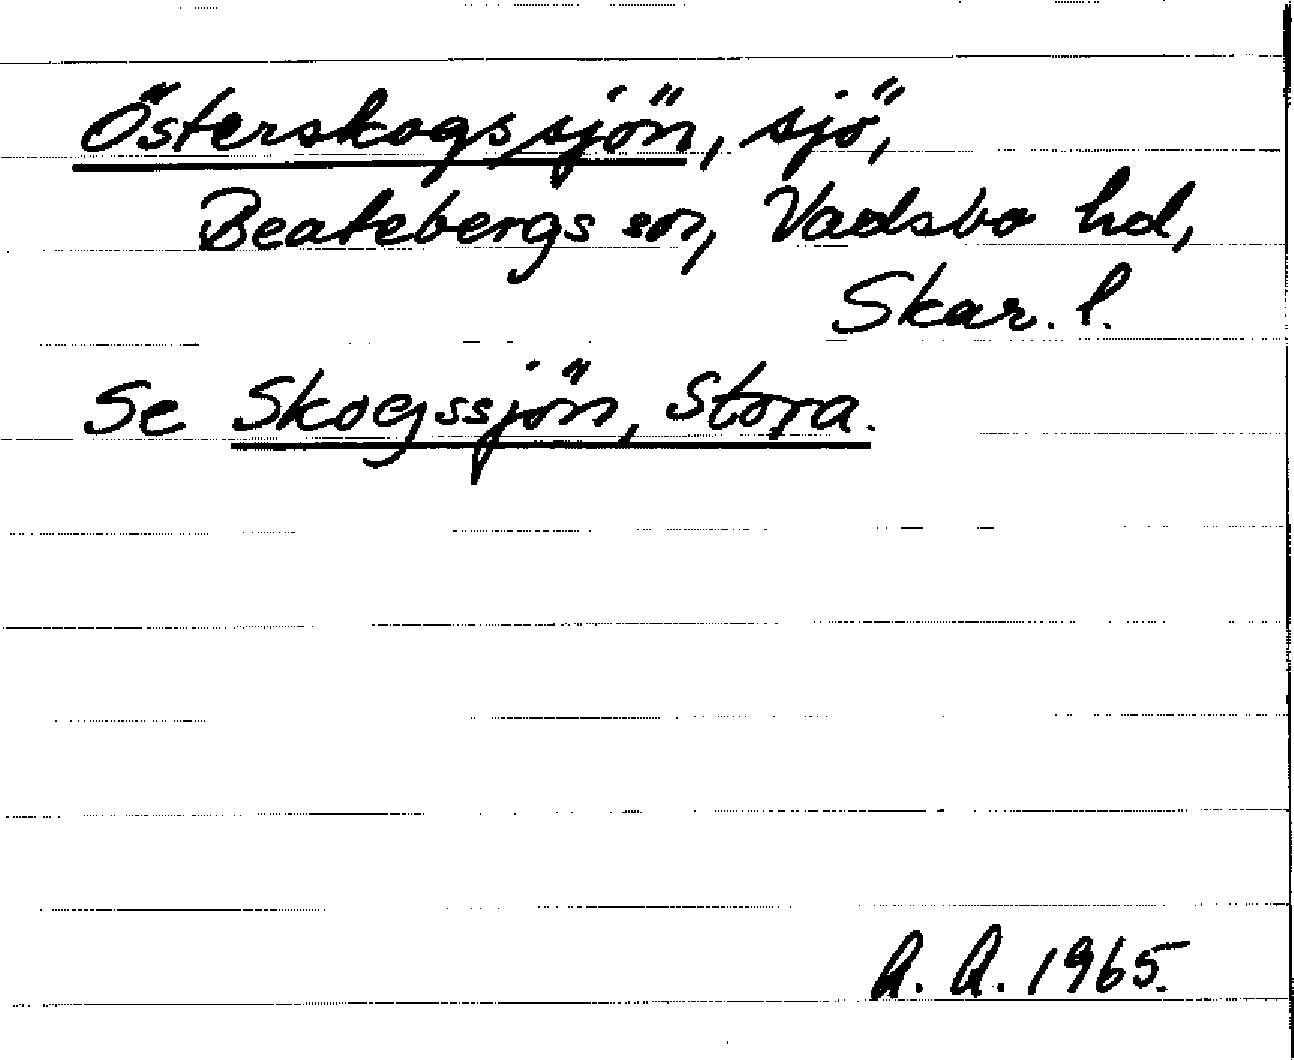 Österskogssjön, sjö,
Beatebergs sn, Vadsbo hd,
Skar. l.
Se Skogssjön, Stora.
A. A. 1965.